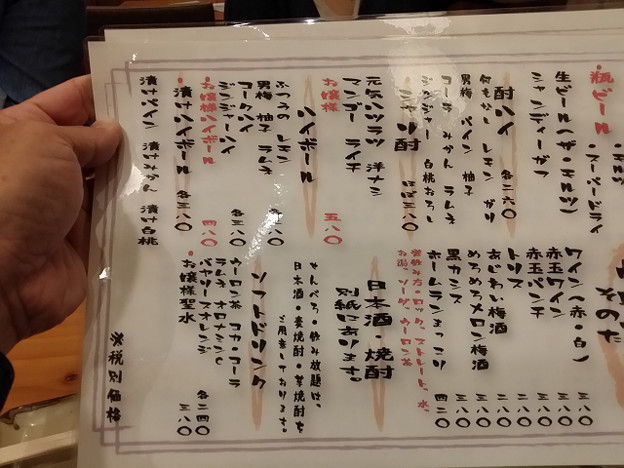 ・瓶ビール
・スーパードライ
生ビール(ザ・モルツ)
シャンディーガフ
酎ハイ
何もなし レモン ガリ
男梅 パイン 柚子
コーラ みかん ラムネ
ジンジャー 白桃おろし
各二六〇
シャリ酎
ほぼ三八〇
元気ハツラツ 洋ナシ
マンゴー ライチ
お嬢様
五八〇
ハイボール
ぶつみの レモン
男梅 柚子 ラムネ
コークハイ
ジンジャーハイ
各三八〇
・お嬢様ハイボール
四八〇
・漬けハイボール
各三八〇
漬けパイン 漬けみかん 漬け白桃
そのた
ワイン(赤・白)
三八〇
赤玉ワイン
三八〇
赤玉パンチ
三八〇
トリス
三八〇
あじわい梅酒
三八〇
めろめろメロン梅酒
三八〇
黒カシス
三八〇
ホームランまっこり
四二〇
飲み方・ロック、ストレート、水、
お湯、ソーダ、ウーロン茶
日本酒・焼酎
別紙にあります。
せんべろ・飲み放題は、
日本酒・麦焼酎・芋焼酎を
ご用意しております。
ソフトドリンク
ウーロン茶 コカ・コーラ
ラムネ オロナミンC
バヤリースオレンジ
各二四〇
・お嬢様聖水
三八〇
※税別価格